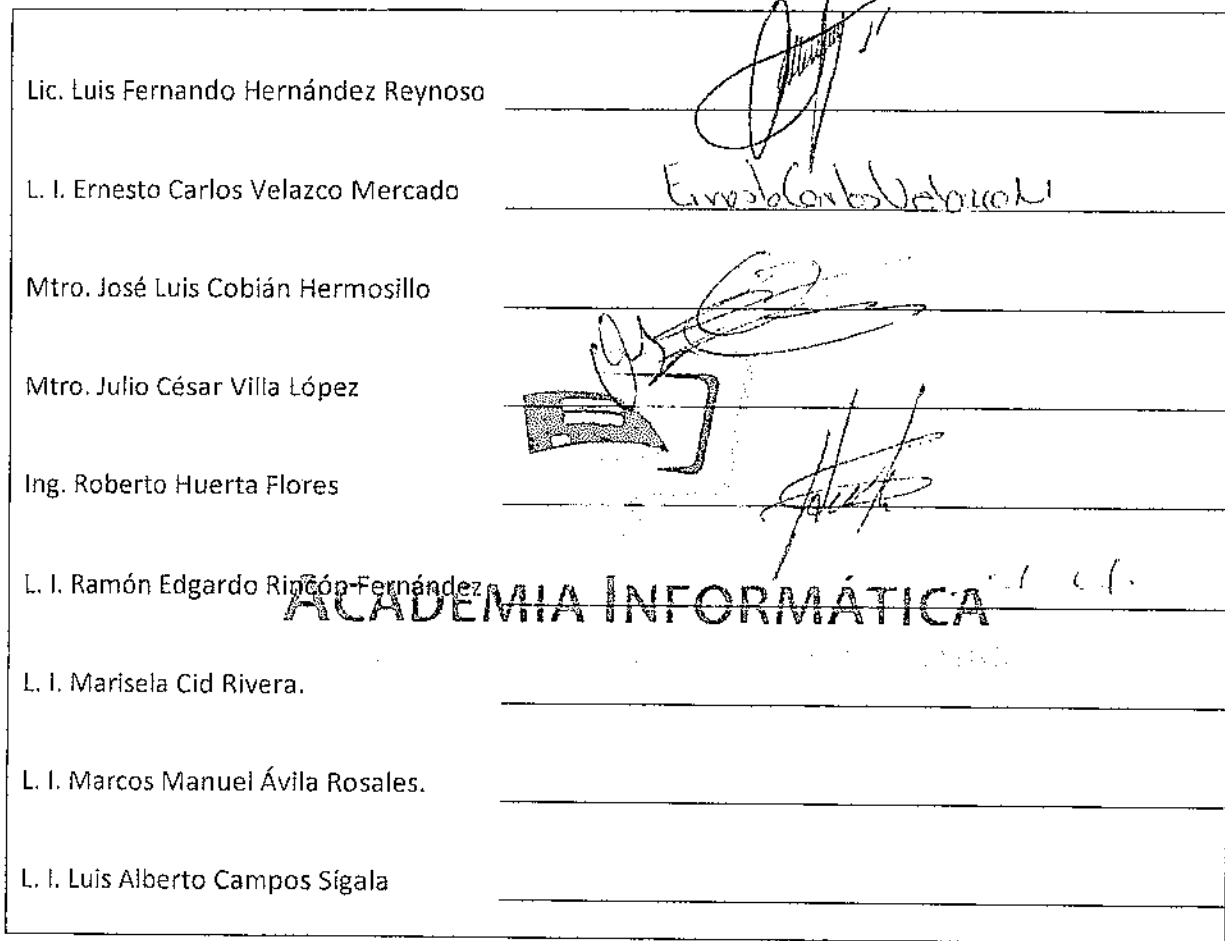 Lic. Luis Fernando Hernández Reynoso
L. I. Ernesto Carlos Velazco Mercado
Ernesto Carlos Velazco M
Mtro. José Luis Cobián Hermosillo
Mtro. Julio César Villa López
Ing. Roberto Huerta Flores
L. I. Ramón Edgardo Rincón Fernández
ACADEMIA INFORMÁTICA
L. I. Marisela Cid Rivera.
L. I. Marcos Manuel Ávila Rosales.
L. I. Luis Alberto Campos Sígala